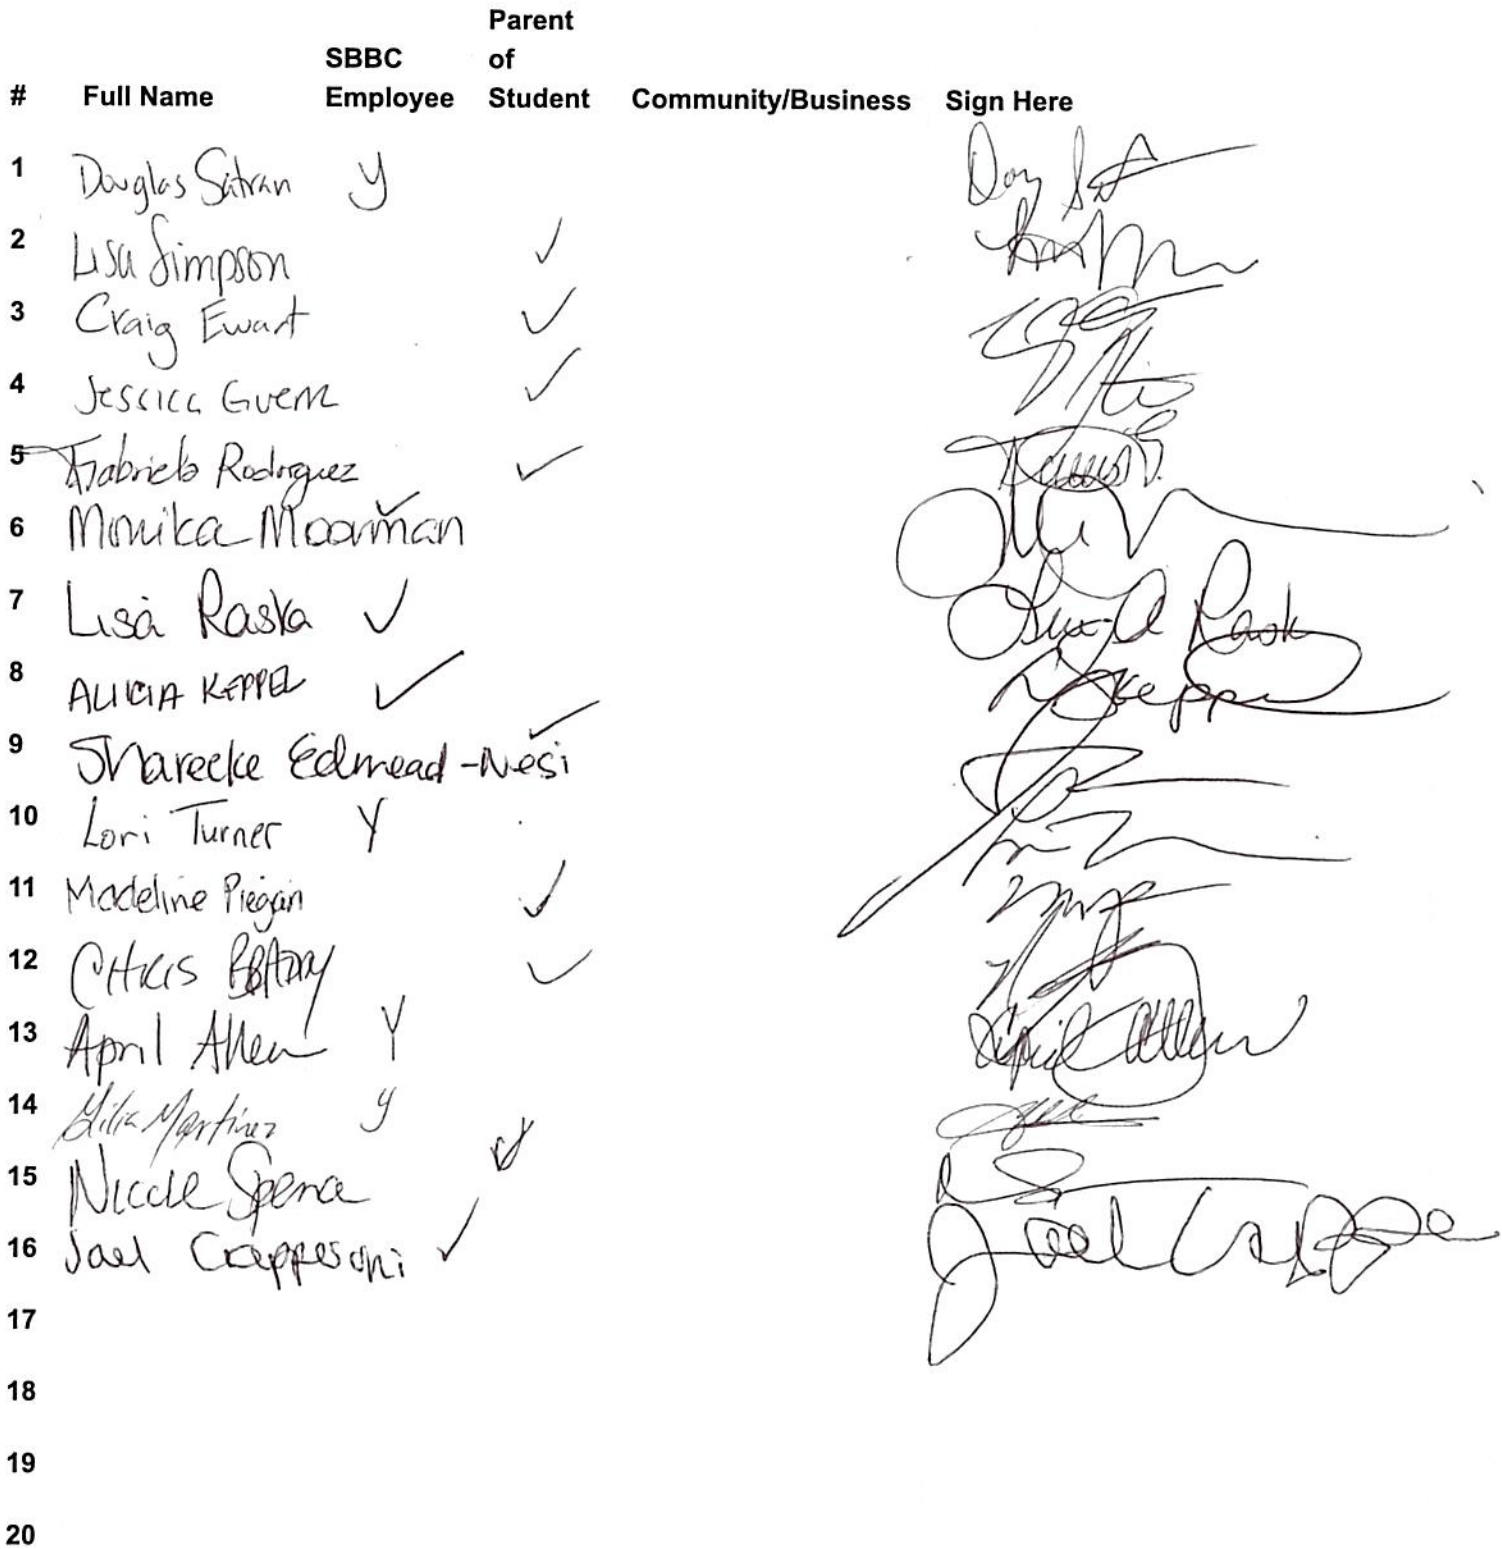 Parent
SBBC of
# Full Name Employee Student Community/Business Sign Here
1 Douglas Satran y Doug
2 Lisa Simpson ✓
3 Craig Ewart ✓
4 Jessica Guerra ✓
5 Gabriela Rodriguez ✓
6 Monika Moorman ✓
7 Lisa Raska ✓ Lisa
8 ALICIA KEPPEL ✓ Keppel
9 Shareeke Edmead-Nesi ✓
10 Lori Turner Y
11 Madeline Piegan ✓
12 CHRIS ✓
13 April Allen Y April Allen
14 Lilia Martinez y
15 Nicole Spena ✓
16 Jael Crapperoni ✓ Jael
17
18
19
20